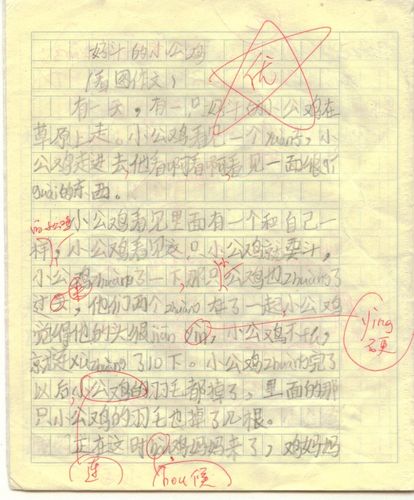 好斗的小公鸡
(看图作文)
优
有一天,有一只好斗的小公鸡在
草原上走。小公鸡看见一个
公鸡走进去,他看啊看啊看见一面很
的东西。
小公鸡看见里面有一个和自己一
样,小公鸡看见这只小公鸡就要斗,
小公鸡zhuàng了一下,那只小公鸡也zhuàng了
过去,他们两个zhuàng在了一起,小公鸡
觉得他的头很jiān yìn,小公鸡不
ying
硬
了10下。小公鸡zhuàng完了
以后,小公鸡的羽毛都掉了,里面的那
只小公鸡的羽毛也掉了几根。
正在这时 鸡妈妈来了,鸡妈妈
连
hou候